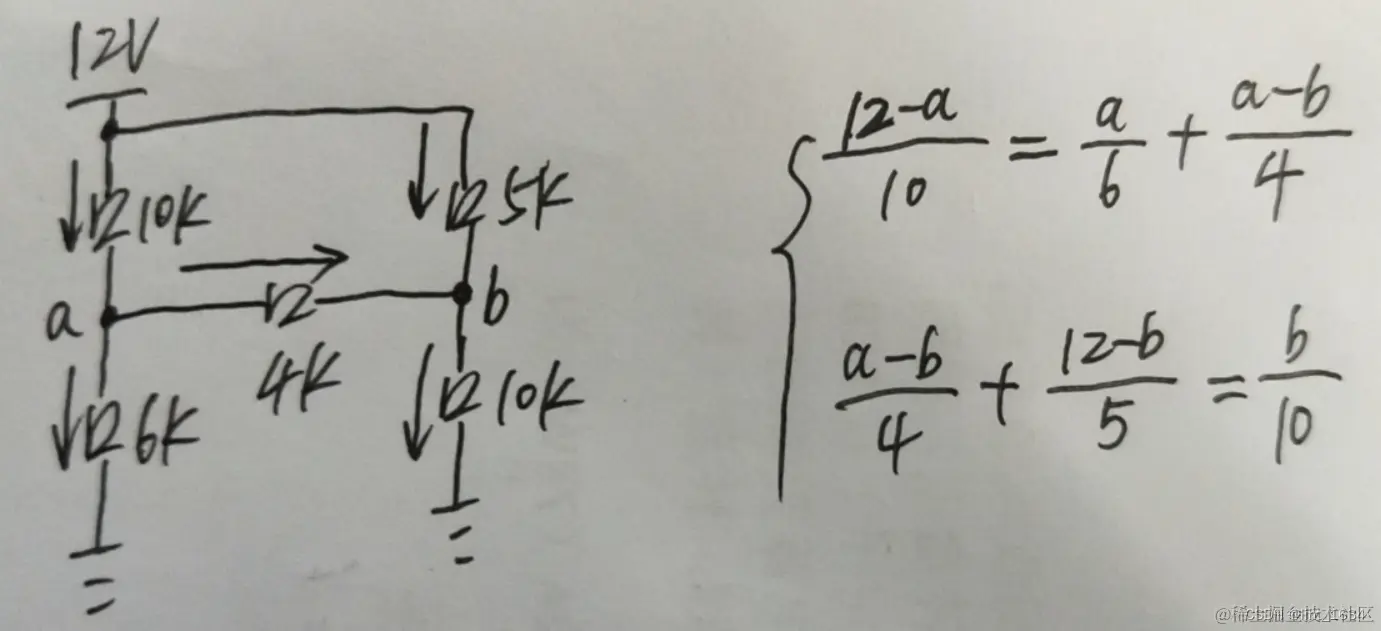 12V
10K
5K
a
b
4K
6K
10K
12-a/10 = a/6 + a-b/4
a-b/4 + 12-b/5 = b/10